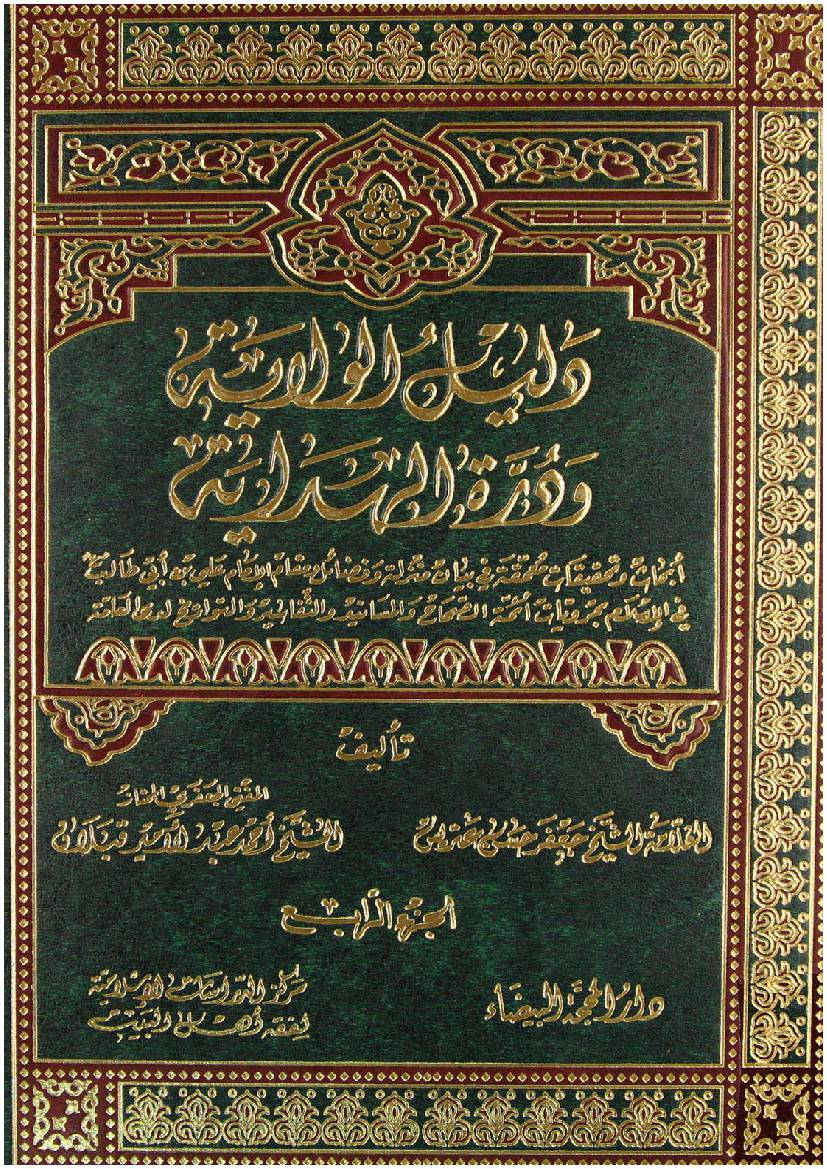 دَليلُ الولاية
وَدُرَّة الهداية
أبحاث وتحقيقات محققة في بيان منزلة وفضائل ومقام الإمام علي بن أبي طالب
في الإسلام بمرويات أئمة الصحاح والمسانيد والتفاسير والتواريخ لدى العامة
تأليف
المفتي الجعفري الممتاز
العلّامة الشيخ جعفر حسن عتريس
الشيخ أحمد عبد الأمير قبلان
الجزء الرابع
دار المحجة البيضاء
مركز الدراسات الإسلامية
لفقه أهل البيت